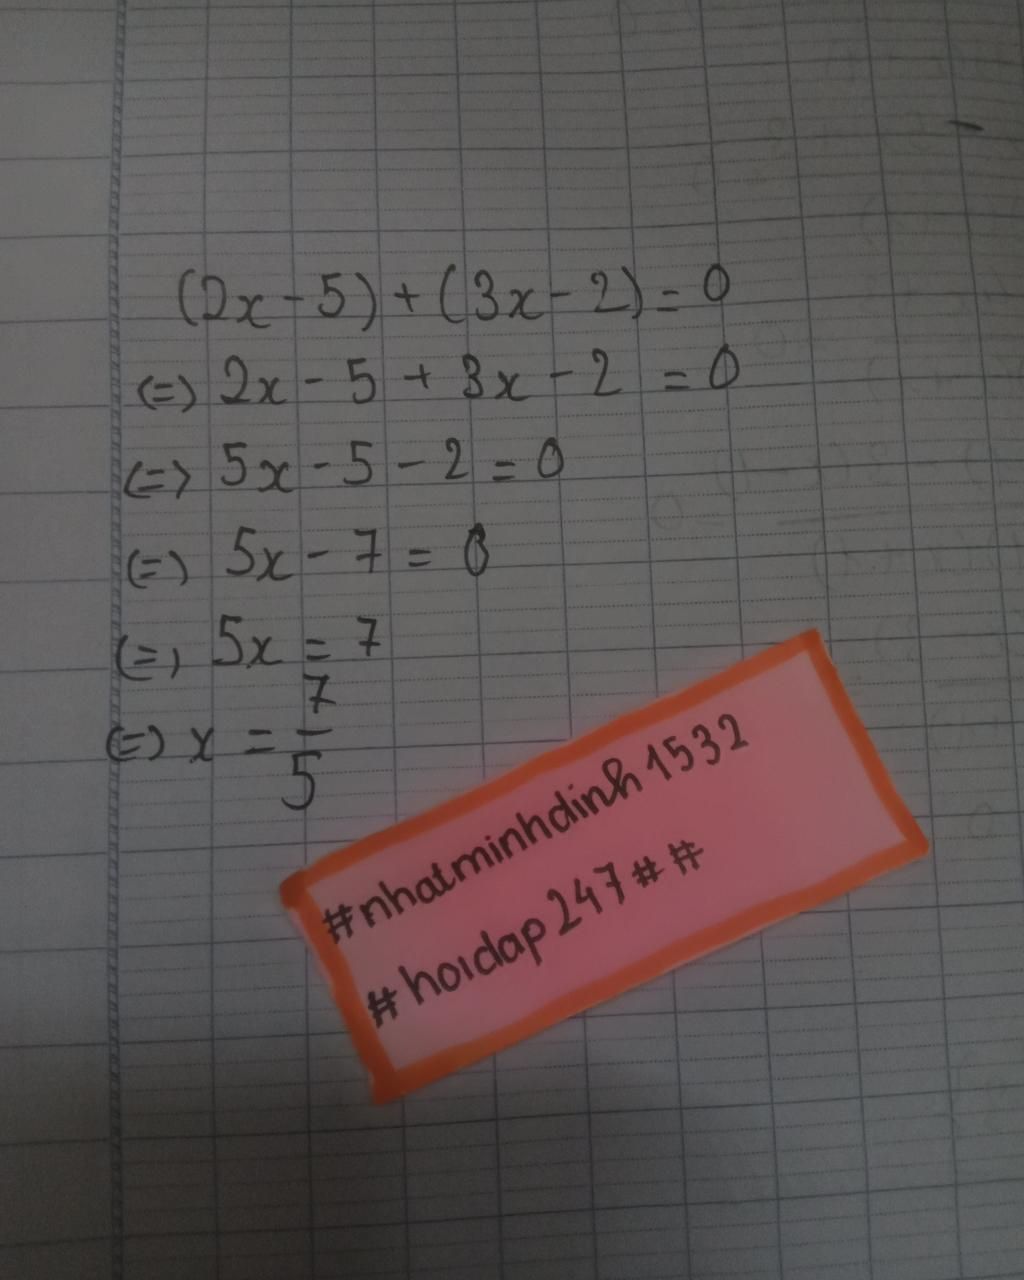 (2x - 5) + (3x - 2) = 0
(=) 2x - 5 + 3x - 2 = 0
(=) 5x - 5 - 2 = 0
(=) 5x - 7 = 0
(=) 5x = 7
(=) x = 7/5
#nhatminhdinh1532
#hoidap247##